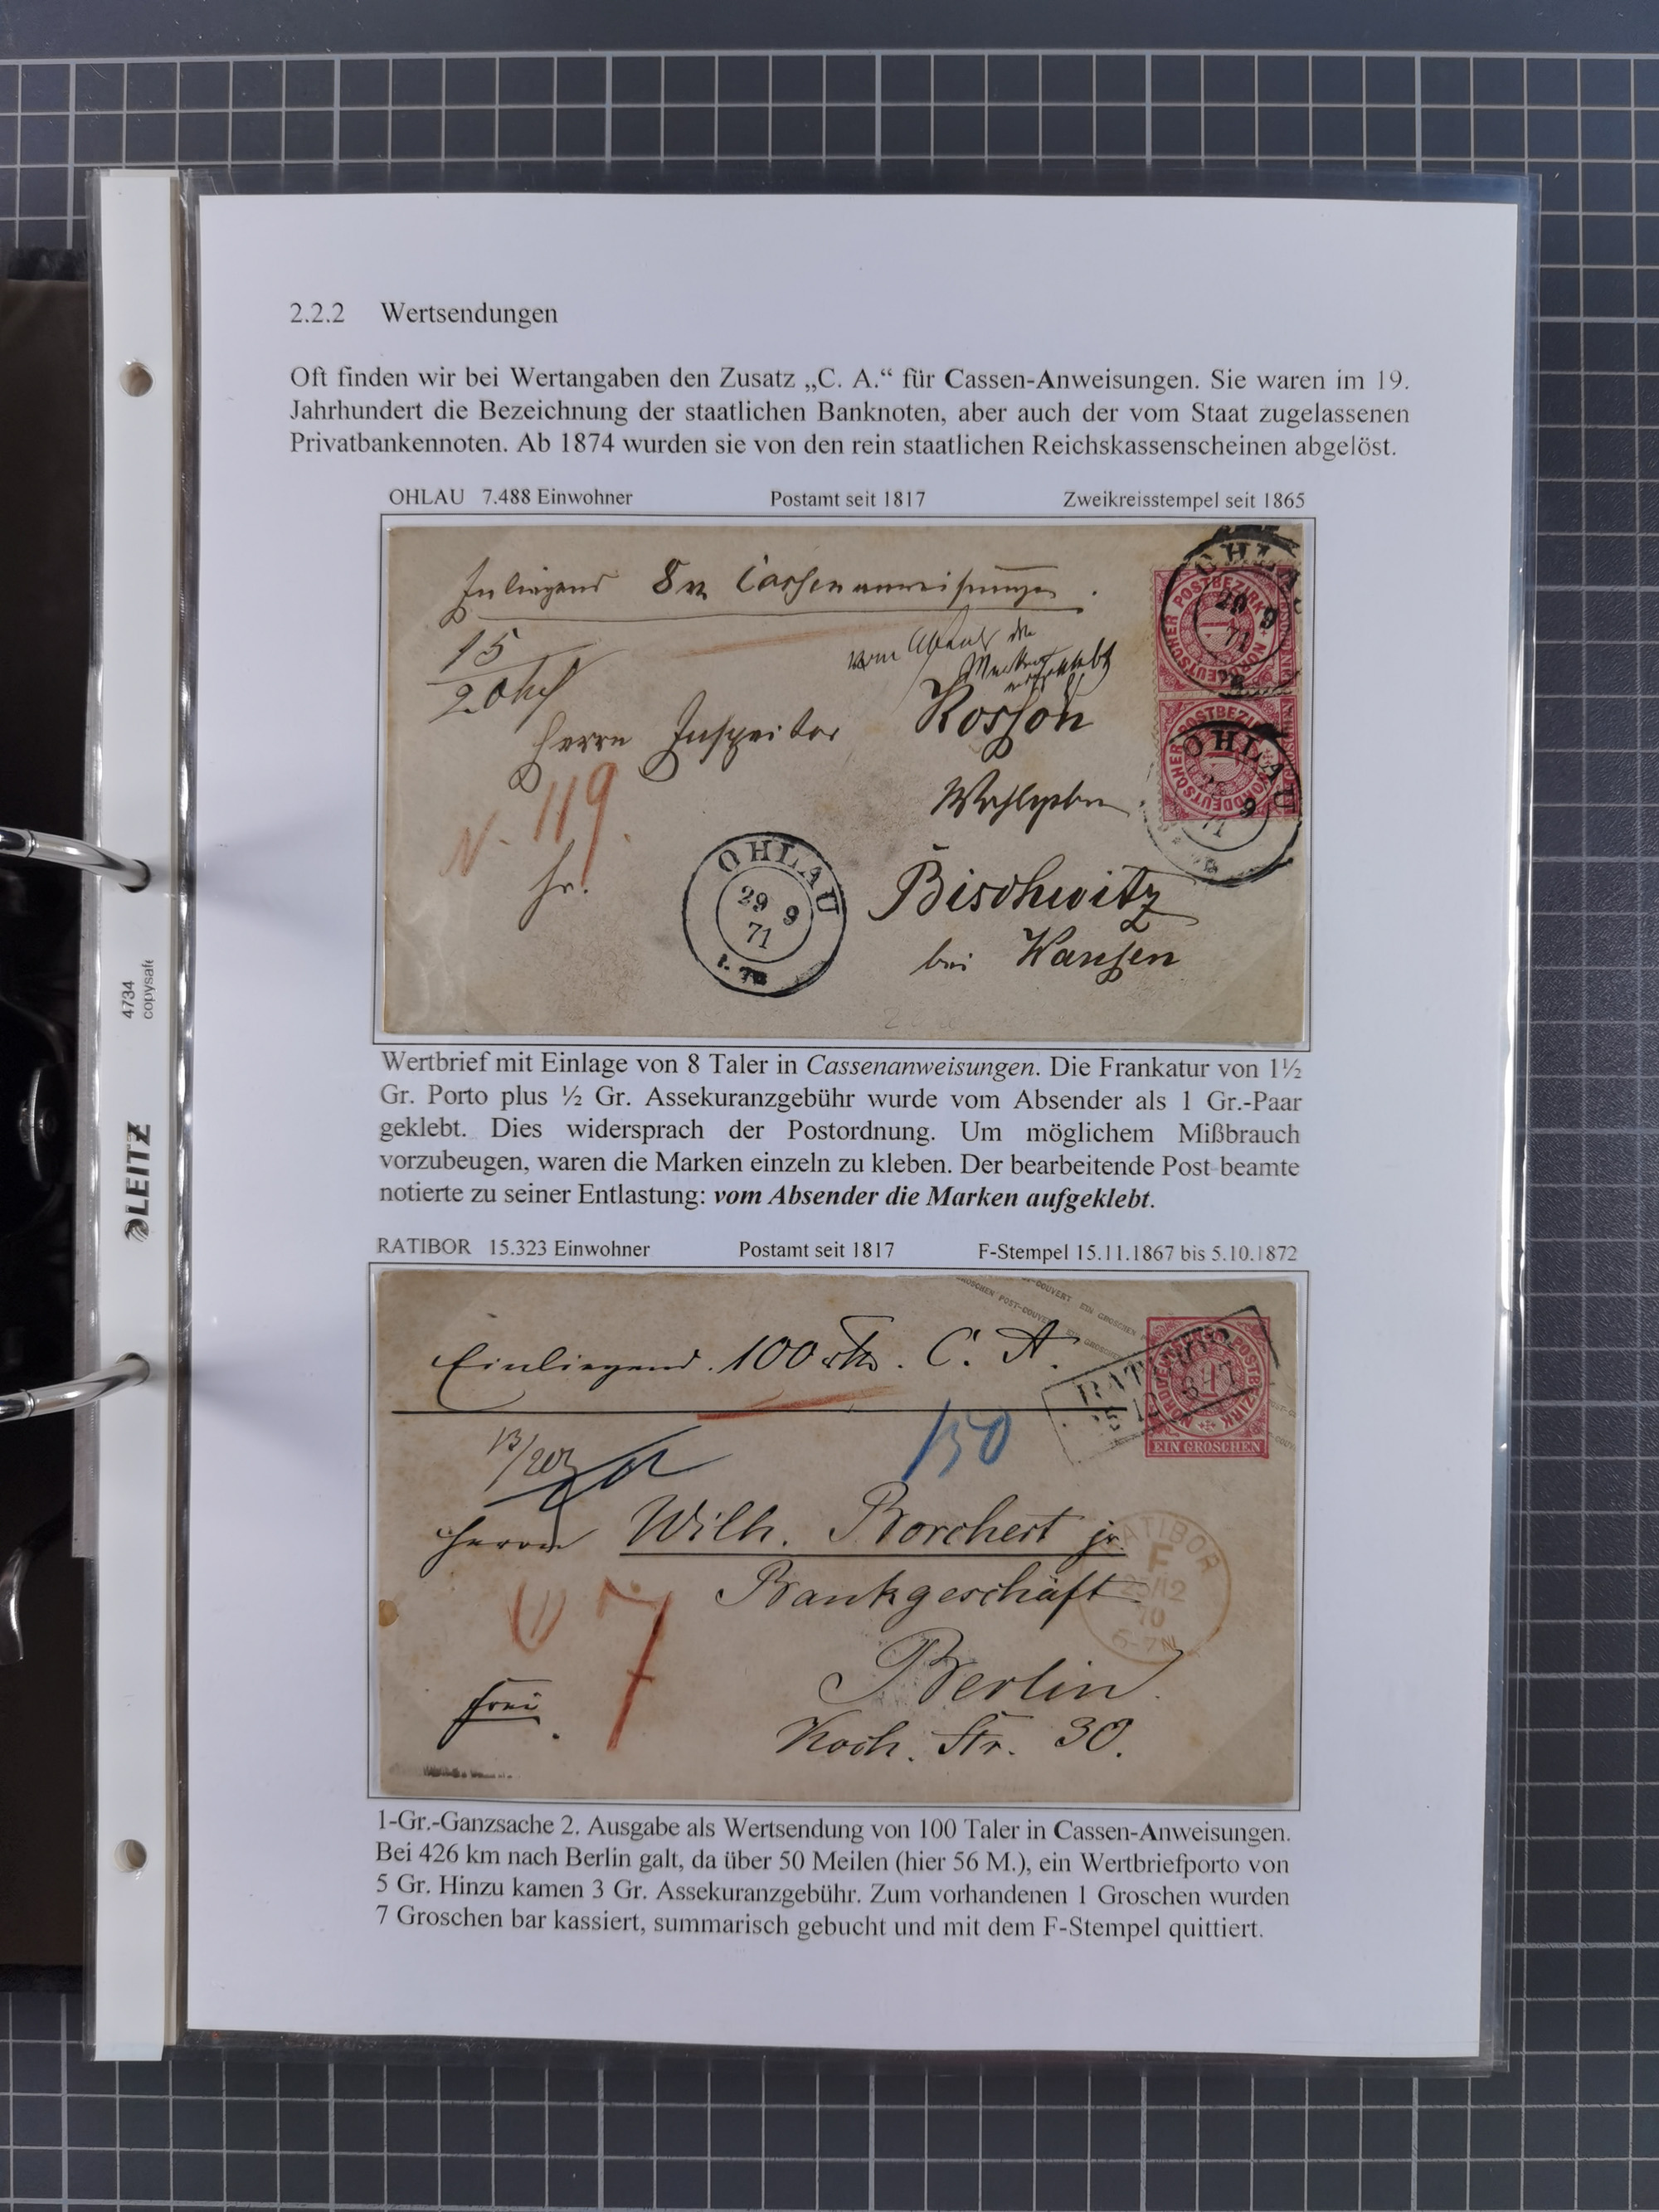 2.2.2 Wertsendungen
Oft finden wir bei Wertangaben den Zusatz „C. A.“ für Cassen-Anweisungen. Sie waren im 19.
Jahrhundert die Bezeichnung der staatlichen Banknoten, aber auch der vom Staat zugelassenen
Privatbankennoten. Ab 1874 wurden sie von den rein staatlichen Reichskassenscheinen abgelöst.
OHLAU 7.488 Einwohner Postamt seit 1817 Zweikreisstempel seit 1865
Inliegend 8 Cassenanweisungen.
15
vom Absender die
Marken aufgeklebt
Herrn Inspector Rosson
N. 119.
Wohlgeboren
fr.
Bischwitz
bei Wansen
OHLAU
29 9
71
OHLAU
29 9
71
NORDDEUTSCHER POSTBEZIRK
1
OHLAU
9
71
NORDDEUTSCHER POSTBEZIRK
Wertbrief mit Einlage von 8 Taler in Cassenanweisungen. Die Frankatur von 1½
Gr. Porto plus ½ Gr. Assekuranzgebühr wurde vom Absender als 1 Gr.-Paar
geklebt. Dies widersprach der Postordnung. Um möglichem Mißbrauch
vorzubeugen, waren die Marken einzeln zu kleben. Der bearbeitende Post-beamte
notierte zu seiner Entlastung: vom Absender die Marken aufgeklebt.
RATIBOR 15.323 Einwohner Postamt seit 1817 F-Stempel 15.11.1867 bis 5.10.1872
EIN GROSCHEN POST-COUVERT EIN GROSCHEN
Einliegend 100 C. A.
RATIBOR
NORDDEUTSCHER POSTBEZIRK
1
EIN GROSCHEN
150
Herrn Wilh. Borchert jr.
Bankgeschäft
RATIBOR
F
12
70
6-7N
7
Berlin
frei.
Koch. Str. 30.
1-Gr.-Ganzsache 2. Ausgabe als Wertsendung von 100 Taler in Cassen-Anweisungen.
Bei 426 km nach Berlin galt, da über 50 Meilen (hier 56 M.), ein Wertbriefporto von
5 Gr. Hinzu kamen 3 Gr. Assekuranzgebühr. Zum vorhandenen 1 Groschen wurden
7 Groschen bar kassiert, summarisch gebucht und mit dem F-Stempel quittiert.
LEITZ
4734
copysafe